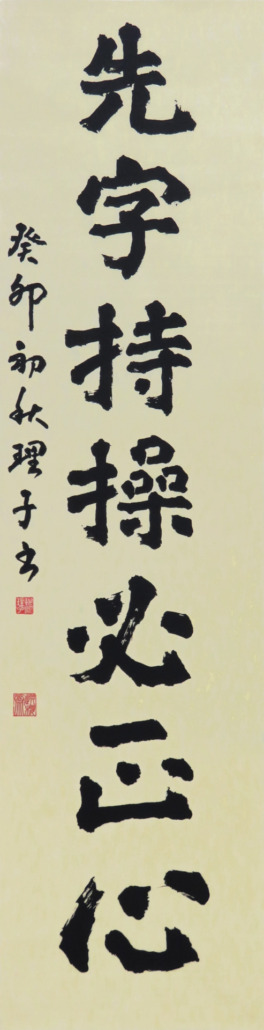 先字持操必正心
癸卯初秋理子书